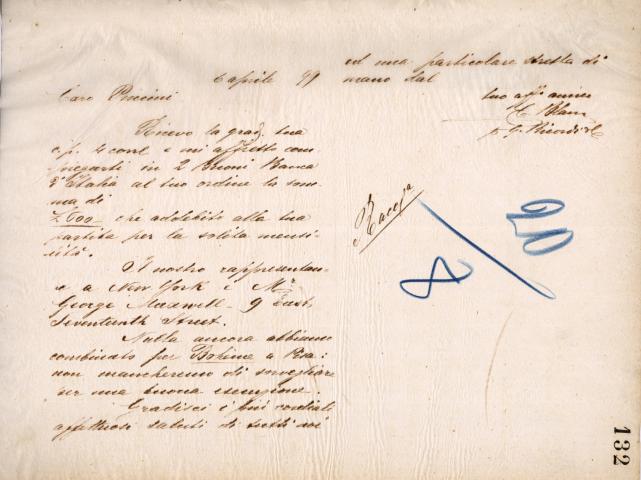 6 aprile 99
Caro Puccini
Ricevo la grad. tua
c.so e mi affretto com-
piegarti in 2 Buoni Banca
d'Italia al tuo ordine la som-
ma di
£ 600 che addebito alla tua
partita per la solita mensi-
lità.
Il nostro rappresentan-
e a New York è Mr
George Maxwell - 9 East
Seventeenth Street.
Nulla ancora abbiamo
combinato per Bohème a Pisa:
non mancheremo di sorvegliare
per una buona esecuzione.
Gradisci i più cordiali
affettuosi saluti di tutti noi
ed una particolare stretta di
mano dal
tuo aff. amico
C. Blanc
p. G. Ricordi & C.
Racc.ta
8/90
132